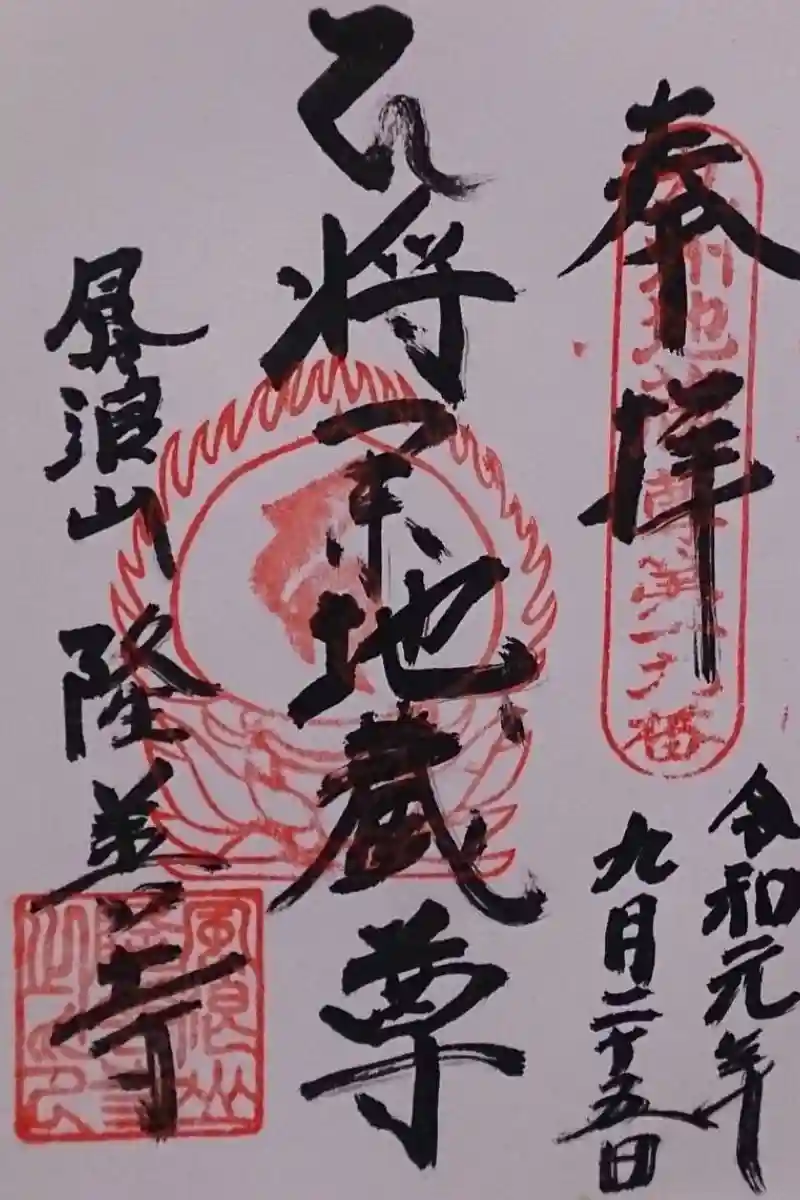 奉拝
令和元年
九月二十五日
将軍地蔵尊
風浪山 隆善寺